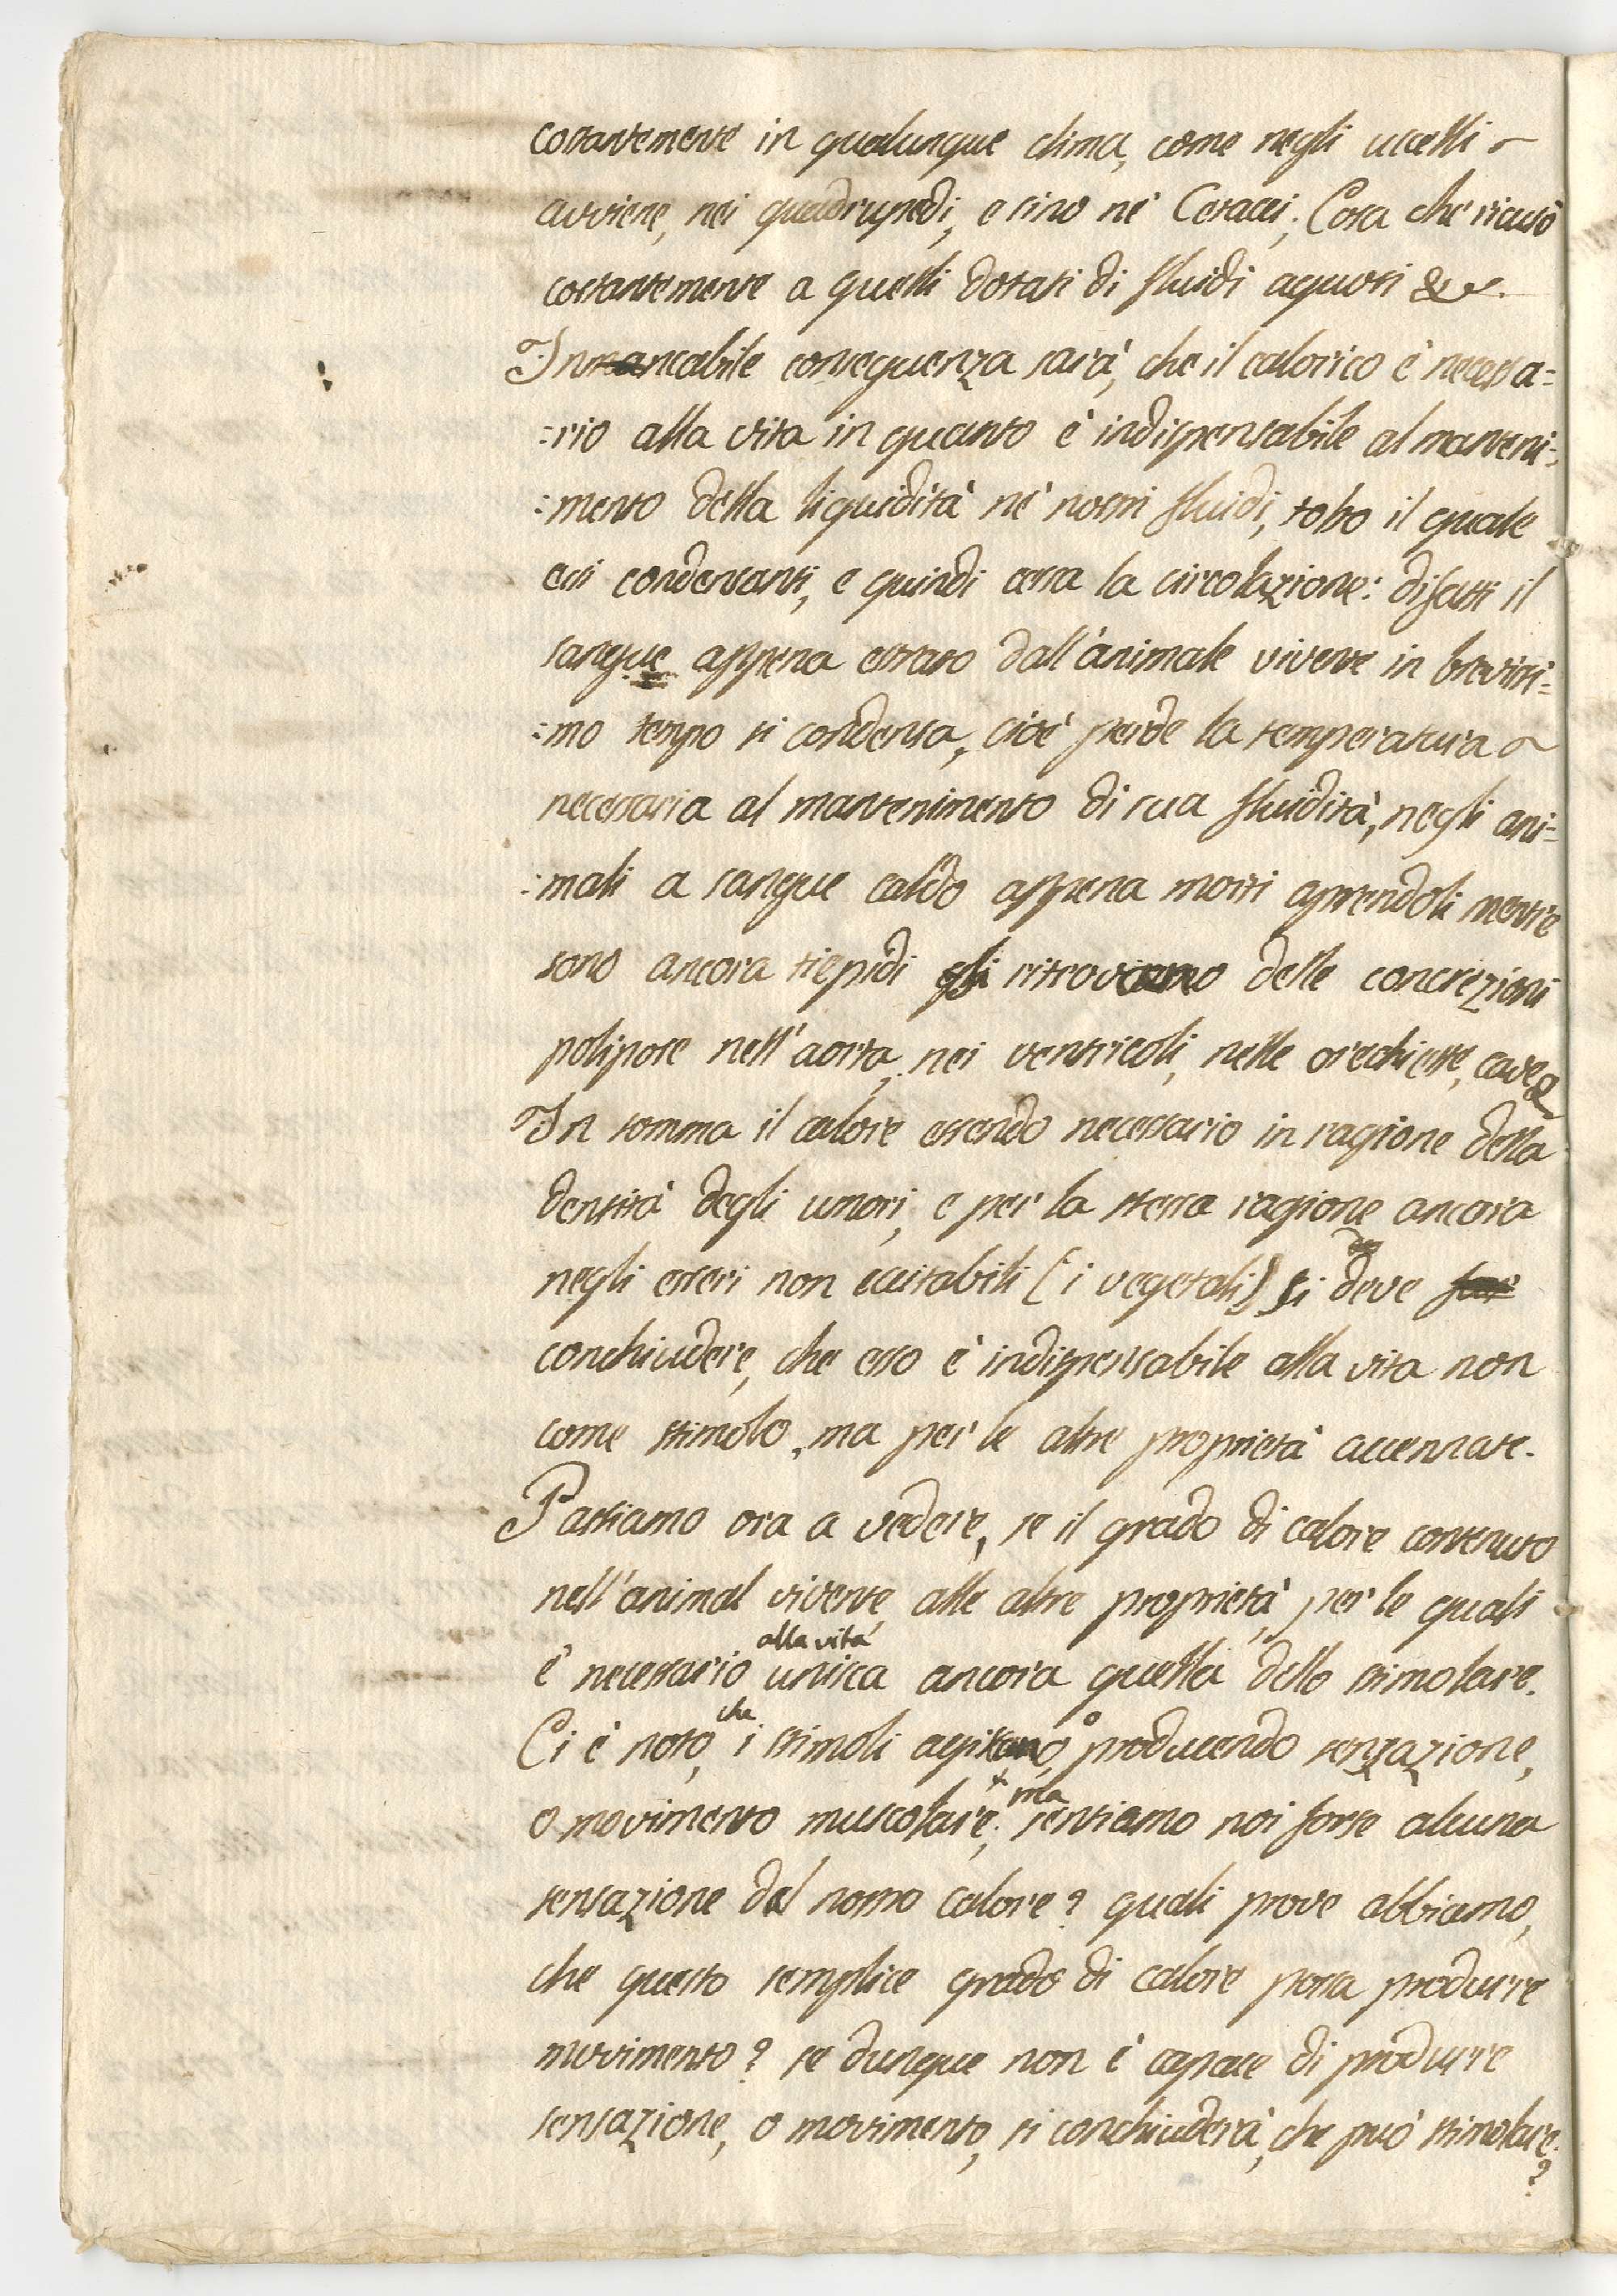 costantemente in qualunque clima, come negli uccelli ~
avviene, nei quadrupedi, e sino ne' Cetacei; Cosa che ricusò
costantemente a quelli dotati di fluidi aquosi &c.
Inmancabile conseguenza sarà, che il calorico è necessa=
:rio alla vita in quanto è indispensabile al manteni=
:mento della liquidità ne' nostri fluidi, tolto il quale
essi condensansi, e quindi cessa la circolazione: difatti il
sangue appena estrato dall'animale vivente in brevissi=
:mo tempo si condensa, cioè perde la temperatura ~
necessaria al mantenimento di sua fluidità, negli ani=
:mali a sangue caldo appena morti aprendoli mentre
sono ancora tiepidi gli ritroviamo delle concrezioni
polipose nell'aorta, nei ventricoli, nelle orechiette, cave &
In somma il calore essendo necessario in ragione della
densità degli umori, e per la stessa ragione ancora
negli esseri non eccitabili (i vegetali) si deve
conchiudere, che esso è indispensabile alla vita non
come stimolo, ma per le altre proprietà accennate.
Passiamo ora a vedere, se il grado di calore contenuto
nell'animal vivente alle altre proprietà, per le quali
è necessario alla vita unisca ancora quella dello stimolare.
Ci è noto, che i stimoli agiscono, o producendo sensazione,
o movimento muscolare; ma sentiamo noi forse alcuna
sensazione del nostro calore? quali prove abbiamo,
che questo semplice grado di calore possa produrre
movimento? se dunque non è capace di produrre
sensazione, o movimento, si conchiuderà, che può stimolare?